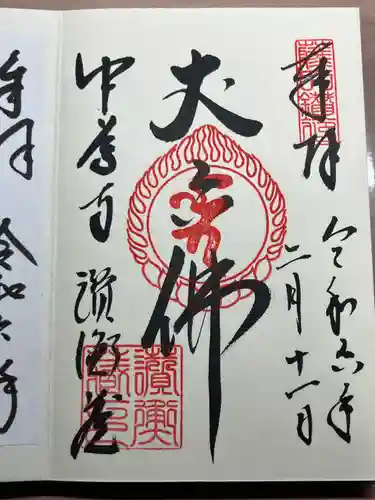 奉拝
令和六年
二月十一日
丈六佛
中尊寺 讃衡蔵
讃衡
蔵印
奉拝 令和六年